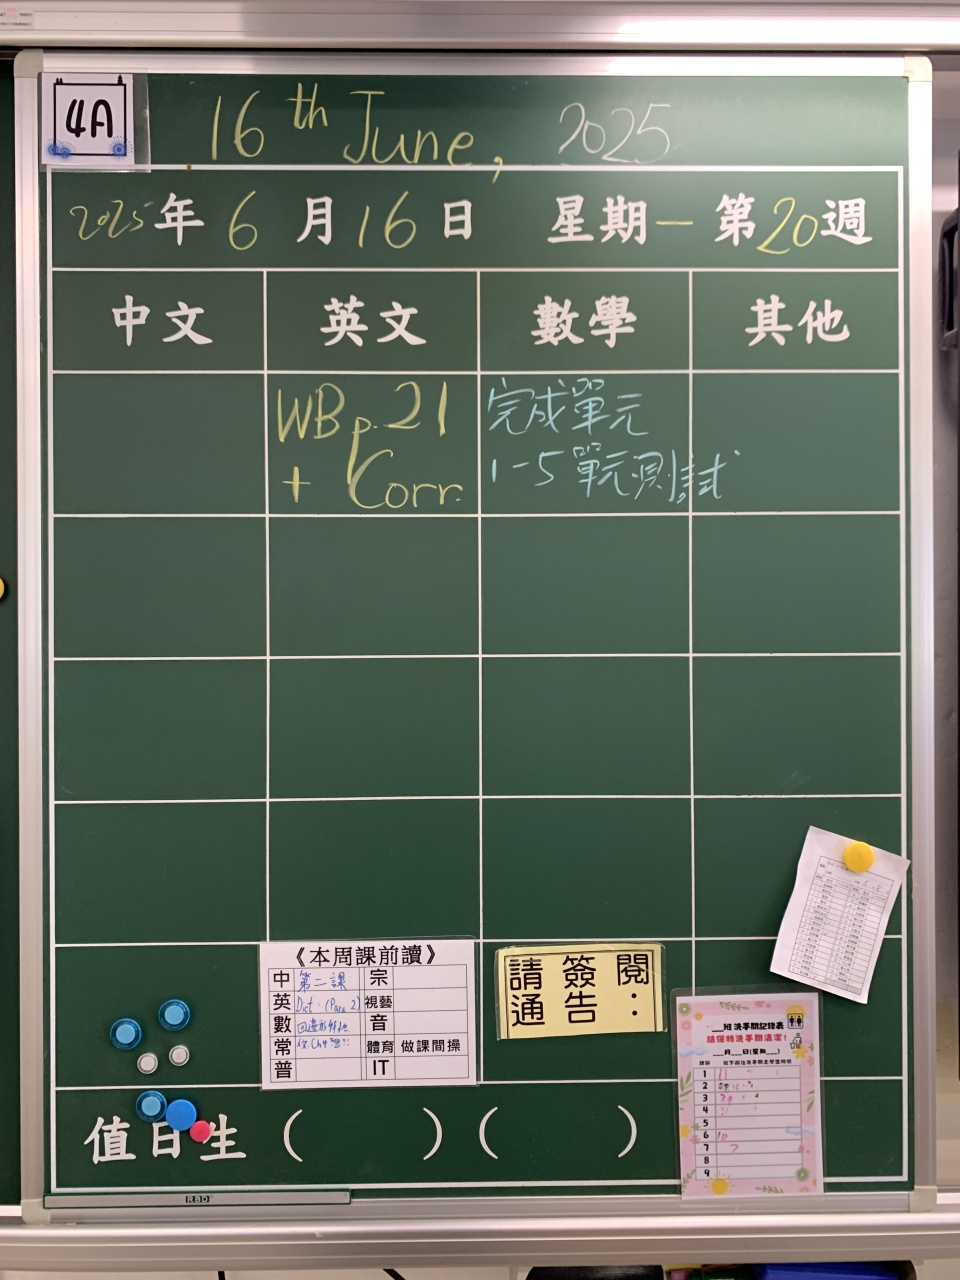 4A
16th June, 2025
2025年6月16日 星期一 第20週
中文 英文 數學 其他
WB p.21
+ Corr.
完成單元
1-5單元測試
《本周課前讀》
中 第二課 宗
英 Dict: (Para 2) 視藝
數 四邊形特性 音
常 體育 做課間操
普 IT
請簽閱
通告:
班洗手間記錄表
請保持洗手間清潔!
月 日(星期 )
1
2
3
4
5
6
7
8
9
值日生 ( ) ( )
RBD